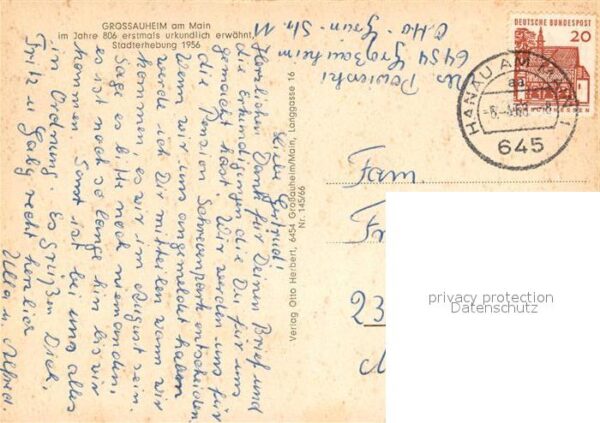 GROSSAUHEIM am Main
im Jahre 806 erstmals urkundlich erwähnt,
Stadterhebung 1956
Liebe Gertrud!
Herzlichen Dank für Deinen Brief und
die Erkundigungen die Du für uns
gemacht hast. Wir werden uns für
die Pension entscheiden.
Wenn wir uns angemeldet haben
werde ich Dir mitteilen wann wir
kommen, es wir im August sein.
Sage es bitte noch niemanden,
es ist noch so lange hin bis wir
kommen. Sonst ist bei uns alles
in Ordnung. Es Grüßen Dich,
Fritz u Gaby recht herzlich
Ulla u. Alfred.
Verlag Otto Herbert, 6454 Großauheim/Main, Langgasse 16
Nr. 145/66
Abs
6454 Großauheim
Otto - - Str. 11
DEUTSCHE BUNDESPOST
20
HANAU AM MAIN 1
645
Fam.
23
privacy protection
Datenschutz